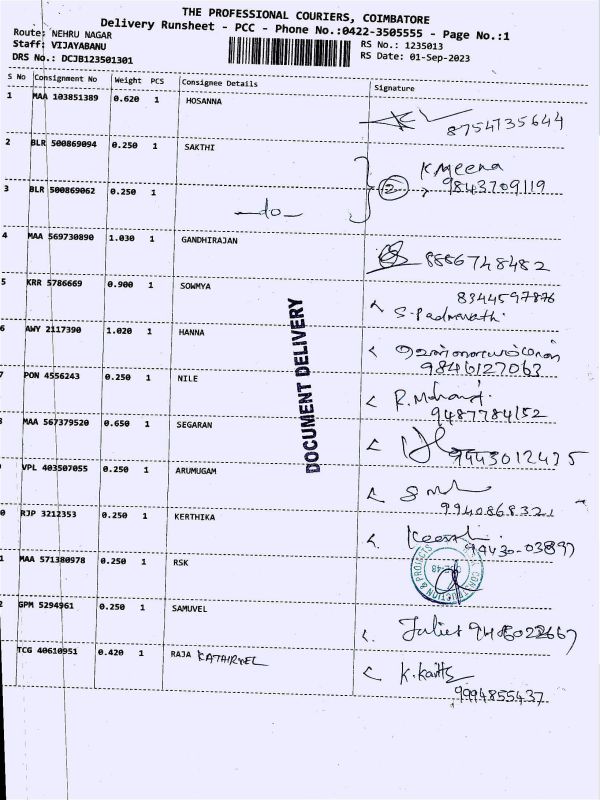 THE PROFESSIONAL COURIERS, COIMBATORE
Delivery Runsheet - PCC - Phone No.:0422-3505555 - Page No.:1
Route: NEHRU NAGAR
RS No.: 1235013
Staff: VIJAYABANU
RS Date: 01-Sep-2023
DRS No.: DCJB123501301
S No Consignment No Weight PCS Consignee Details Signature
1 MAA 103851389 0.620 1 HOSANNA
8754735644
2 BLR 500869094 0.250 1 SAKTHI
K Meena
9843709119
3 BLR 500869062 0.250 1
—do—
2
4 MAA 569730890 1.030 1 GANDHIRAJAN
8886748482
5 KRR 5786669 0.900 1 SOWMYA
8344597876
S. Padmavathi
6 AWY 2117390 1.020 1 HANNA
9846127063
7 PON 4556243 0.250 1 NILE
R. Mohanraj
9487784152
8 MAA 567379520 0.650 1 SEGARAN
9443012435
DOCUMENT DELIVERY
9 VPL 403507055 0.250 1 ARUMUGAM
9940868321
0 RJP 3212353 0.250 1 KERTHIKA
94430-03897
1 MAA 571380978 0.250 1 RSK
CONSTRUCTION & PROJECTS
2 GPM 5294961 0.250 1 SAMUVEL
Juliet
TCG 40610951 0.420 1 RAJA KATHIRVEL
K. Karthi
9994855437